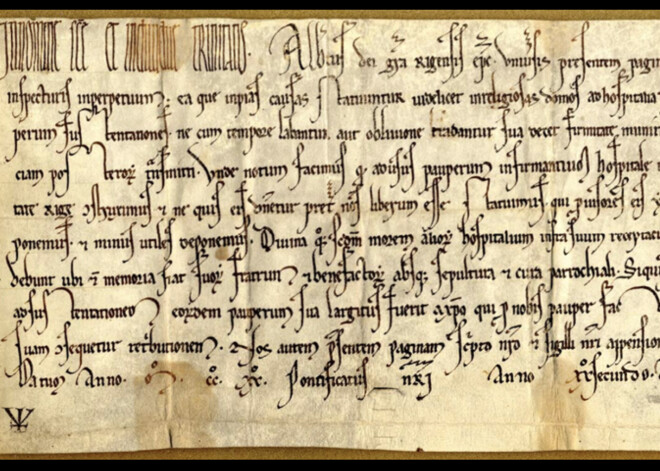 In nomine sce et individue trinitatis. Alb'tus dei gra Rigensis epc. Universis presentem pagin
inspecturis inperpetuum. ea que inpias causas statuuntur videlicet inreligiosas domos ad hospitalia
perum sustentationes ne cum tempore labantur. aut oblivione tradantur sua decet firmitate muniri
ciam posteros transmitti. Unde notum facimus q ad usus pauperum infirmantium hospitale
tate Rige construximus & ne quis ei dnetur preter nos liberum esse statuimus. qui pvisores ei
ponemus. & minus utiles deponemus. Divina q secdm morem alior hospitalium infra suum
debunt ubi & memoria fiat suor fratrum & benefactor absq sepultura & cura parrochiali. Siqui
ad sustentationem eordem pauperum sua largitus fuerit a xpo qui p nobis pauper fac
suam consequetur retributionem. Nos autem psentem paginam scpto nro & sigilli nri appension
Datum Anno. cc. xx. Pontificatus nri Anno xx secundo.